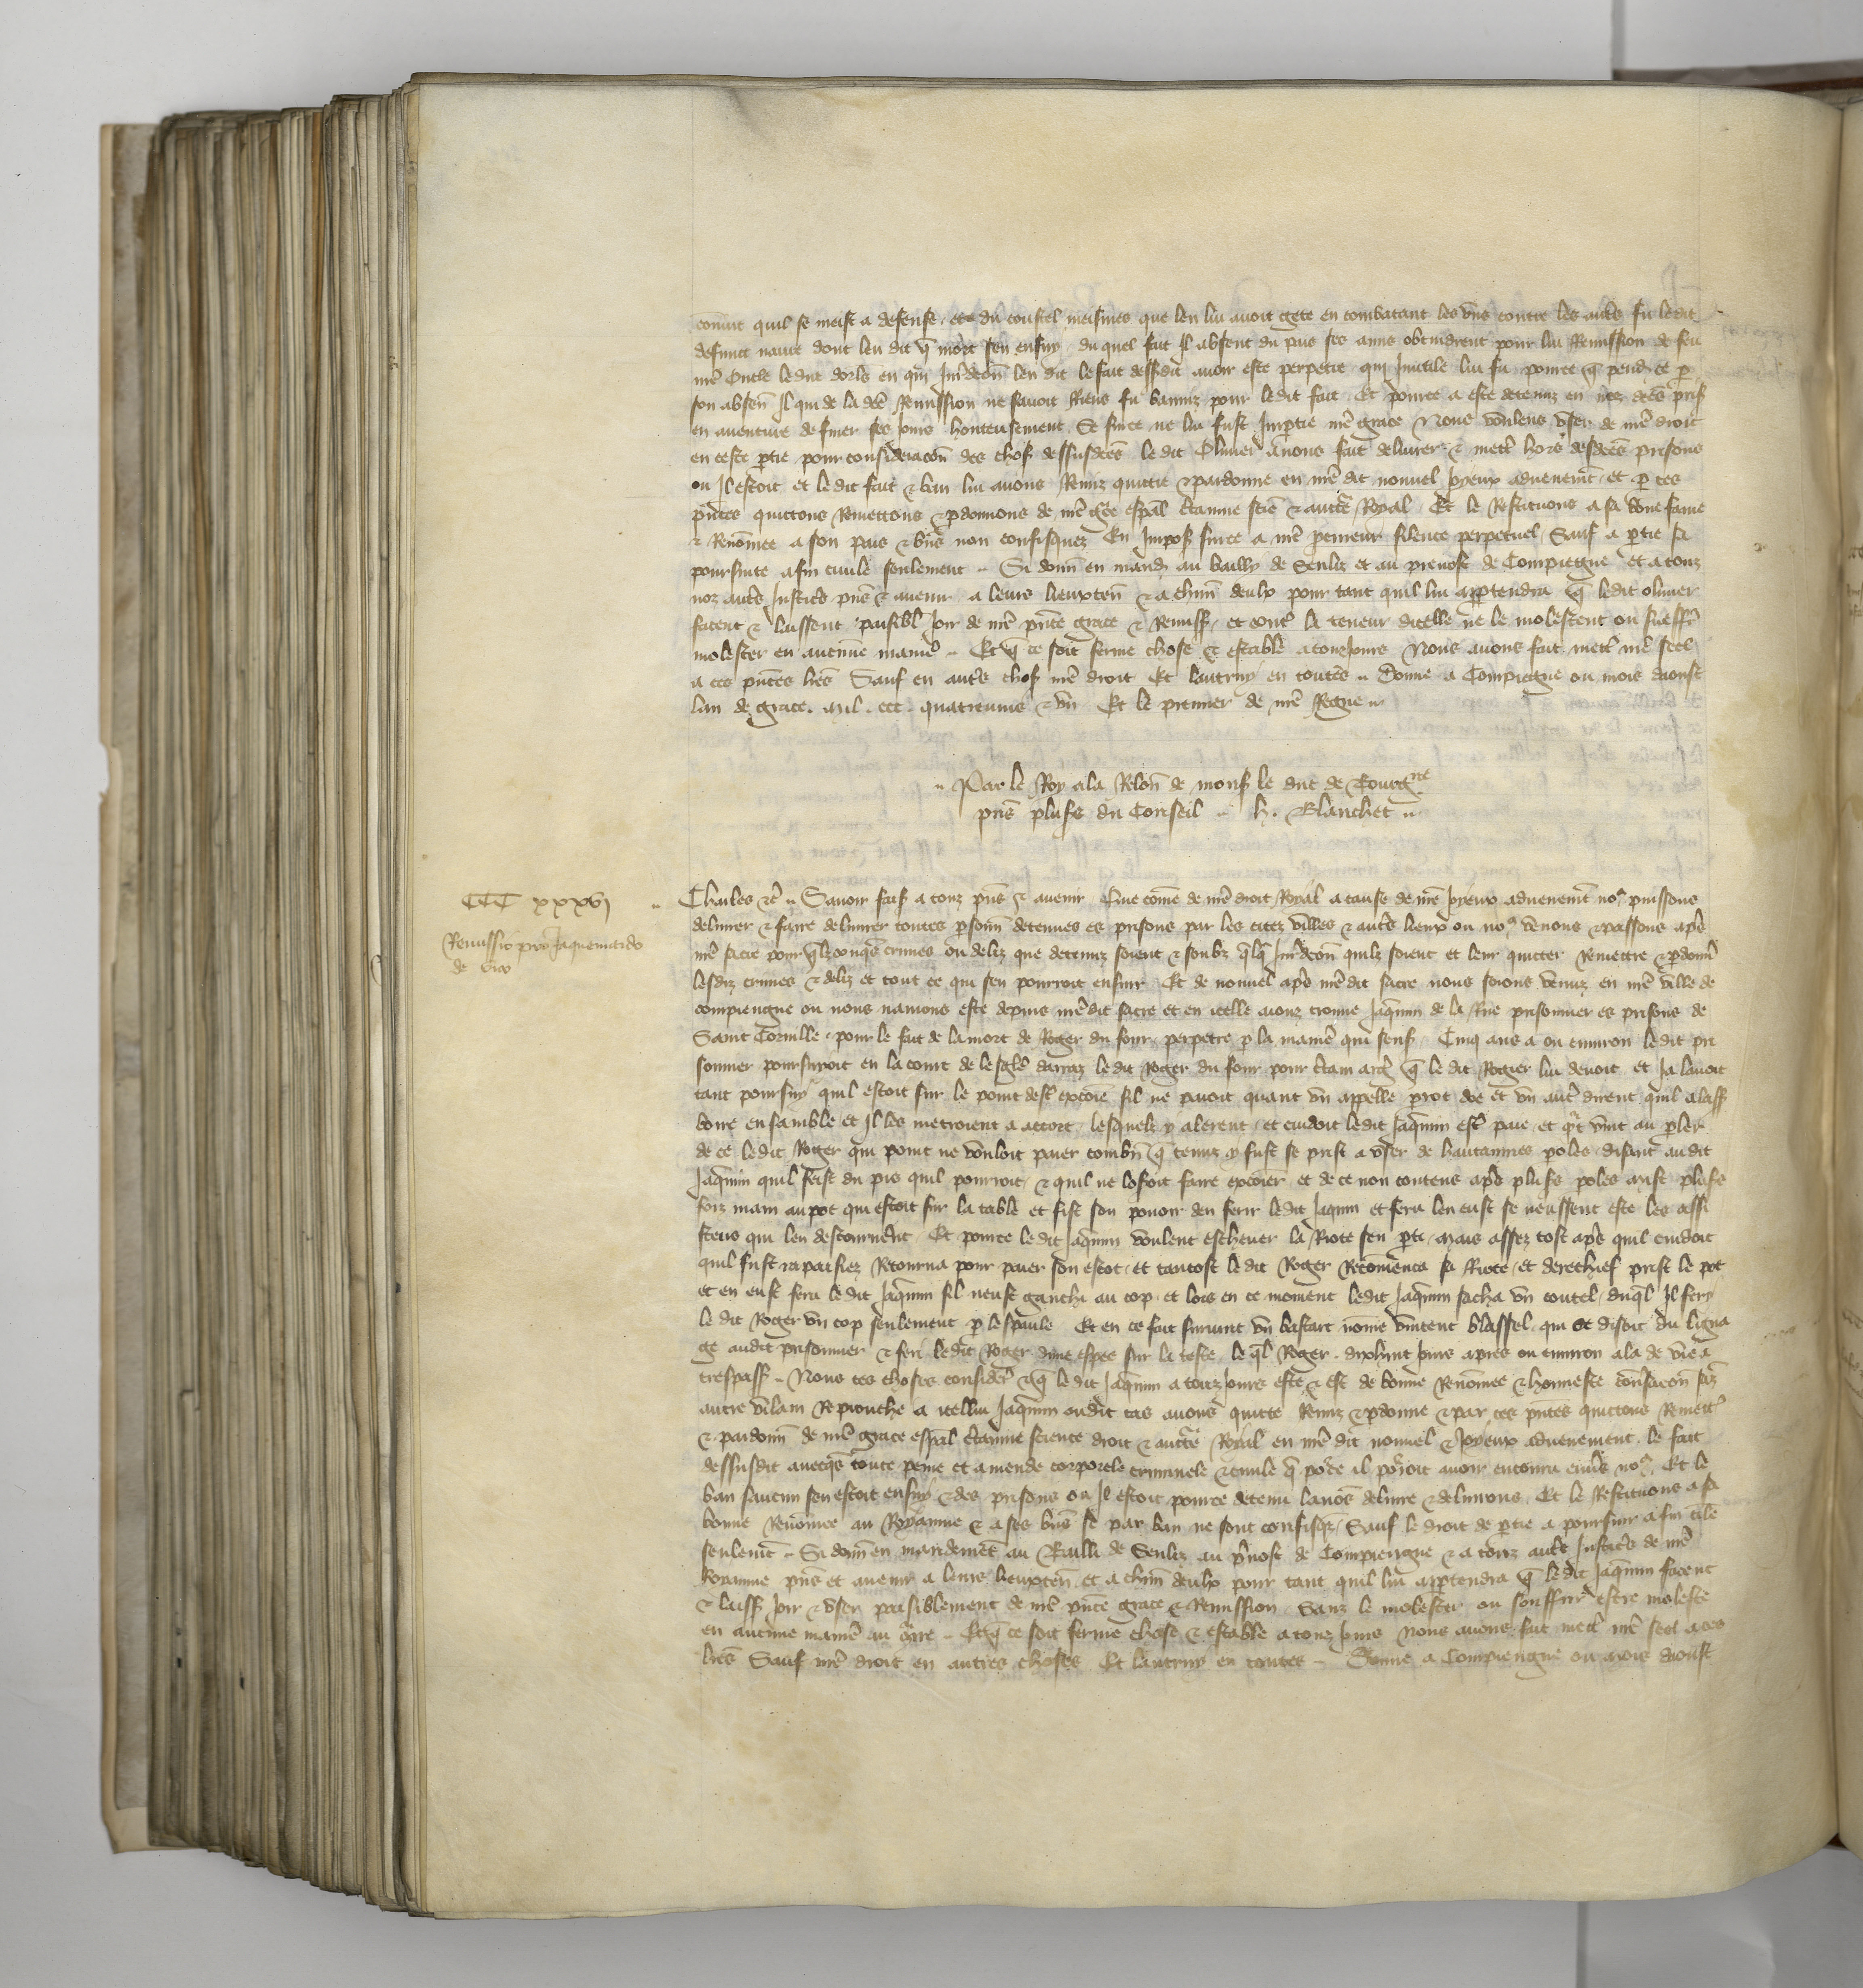 convint quil se meist a defense et du coustel meismes que len lui avoit gete en combatant les uns contre les autrs fu ledit
defunct navre dont len dit q mort sen ensuy du quel fait Il absent du pais ses amis obtindrent pour lui Remission de feu
nre Oncle le duc dorls en qui Juridcon len dit le fait dessusdit avoir este perpetre qui Inutile lui fu pource q pend ce p
son absen Il qui de la dce Remission ne savoit Riens fu baniz pour ledit fait Et pource a este detenuz en noz dces pris
en aventure de finer ses jours honteusement Se sur ce ne lui fust Impartie nre grace Nous voulens user de nre droit
en ceste ptie pour consideracon des chos dessusdces le dit Olivier avons fait delivrer & mettr hors desdces prisons
ou Il estoit et le dit fait & ban lui avons Remiz quittie & pardonne en nre dit nouvel Joyeux advenemt et p ces
pntes quittons Remettons & pdonnons de nre gre espal ctainne scie & auctte Royal Et le Restituons a sa bone fame
& Renomee a son pais & biens non confisquez En Impos sur ce a nre procureur silence perpetuel Sauf a ptie sa
poursuite afin civile seulement Si donn en mand au bailly de Senliz et au prevost de Compiegne et a touz
noz autrs Justicrs pns & avenir a leurs lieuxten & a chun deulx pour tant quil lui appartendra q ledit olivier
facent & laissent paisibl Joir de nre pnte grace & Remiss et contr la teneur dicelle ne le molestent ou sueffr
molester en aucune manier Et q ce soit ferme chose & estable a touzjours Nous avons fait mettr nre seel
a ces pntes lres Sauf en autrs chos nre droit Et lautruy en toutes Donne a Compiegne ou mois daoust
lan de grace mil ccc quatrevins & un Et le premier de nre Regne
Par le Roy a la Relon de mons le duc de Bourgne
pns plusrs du Conseil h. Blanchet
CCC xxxvj
Remissio pro Jaquemardo
de vico
Charles &c Savoir fais a touz pns & avenir Que come de nre droit Royal a cause de nre Joyeux advenemt nos puissons
delivrer & faire delivrer toutes psonn detenues es prisons par les citez villes & autrs lieux ou nos venons & passons aprs
nre sacre pour qlzconqs crimes ou deliz que detenuz soient & soubz qlq Juridcon quilz soient et leur quitter Remettre & pdonnr
lesdiz crimes & deliz et tout ce qui sen pourroit ensuir Et de nouvel aprs nre dit sacre nous soions venuz en nre ville de
compiengne ou nous navions este depuis nre dit sacre et en icelle aions trouve Jaqmin de la Rue prisonnier es prisons de
Saint Cornille pour le fait de la mort de Roger du four perpetre p la manre qui sens Cinq ans a ou environ le dit pri
sonnier poursuivoit en la court de leglse darraz le dit Roger du four pour ctain arg q le dit Rogier lui devoit et Ja lavoit
tant poursuy quil estoit sur le point destr excoie sil ne paioit quant un appelle prot doe et un autr dirent quil alass
boire ensamble et Il les metroient a accort lesquelz y alerent et cuidoit ledit Jaqmin estr paie et qt vint au pler
de ce ledit Roger qui point ne vouloit paier combn q tenuz y fust se prist a user de hautainnes poles disant au dit
Jaqmin quil feist du pis quil pourroit & quil ne losoit faire excoier et de ce non contens aprs plusrs poles mist plusrs
foiz main au pot qui estoit sur la table et fist son pouoir den ferir ledit Jaqmin et feru len eust se neussent este les assi
stens qui len destournerent Et pource le dit Jaqmin voulent eschever la Riote sen pti mais assez tost aprs quil cuidoit
quil fust rapaisiez Retourna pour paier son escot et tantost le dit Roger Recomenca sa Riote et derechief prist le pot
et en eust feru le dit Jaqmin sil neust ganchi au cop et lors en ce moment ledit Jaqmin sacha un coutel duql Il fery
le dit Roger un cop seulement p lespaule Et en ce fait survint un bastart nome vincent blassel qui se disoit du ligna
ge audit prisonnier & feri ledit Roger dune espee sur la teste le ql Roger dixhuit jours apres ou environ ala de vie a
trespass Nous ces choses consider & q le dit Jaqmin a touzjours este & est de bonne Renomee & honneste conversacon sanz
autre vilain Reprouche a icellui Jaqmin oudit cas avons quitte Remiz & pdonne & par ces pntes quittons Remettr
& pardonn de nre grace espal ctainne science droit & auctte Royal en nre dit nouvel & Joyeux advenement le fait
dessusdit avecqs toute peine et amende corporele criminele & civile q pour ce il porroit avoir encouru envrs nos Et le
ban saucun sen estoit ensuy & des prisons ou Il estoit pource detenu lavons delivre & delivrons Et le Restituons a sa
bonne Renomee au Royaume & a ses biens se par ban ne sont confisqz Sauf le droit de ptie a poursuir a fin civile
seulemt Si donn en mandement au Bailli de Senliz au prvost de Compiengne & a touz autrs Justicrs de nre
Royaume pns et avenir a leurs lieuxten et a chun deulx pour tant quil lui appartendra q le dit Jaqmin facent
& laiss joir & user paisiblement de nre pnte grace & Remission Sanz le molester ou souffrir estre moleste
en aucune manre au contrre Et q ce soit ferme chose & estable a touz jours nous avons fait mettr nre seel a ces
lres Sauf nre droit en autres choses Et lautruy en toutes Donne a Compiengne ou mois daoust